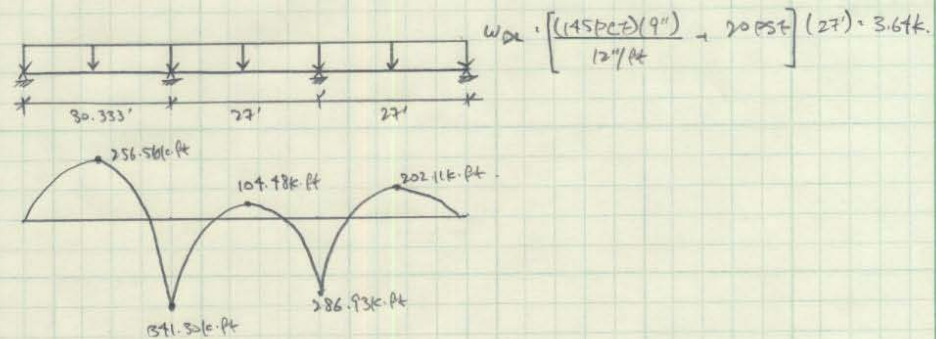 WDL = [(145pcf)(9") / 12"/ft + 20psf] (27') = 3.64k.
30.333' 27' 27'
256.56k.ft
104.48k.ft
202.11k.ft.
341.30k.ft
286.93k.ft